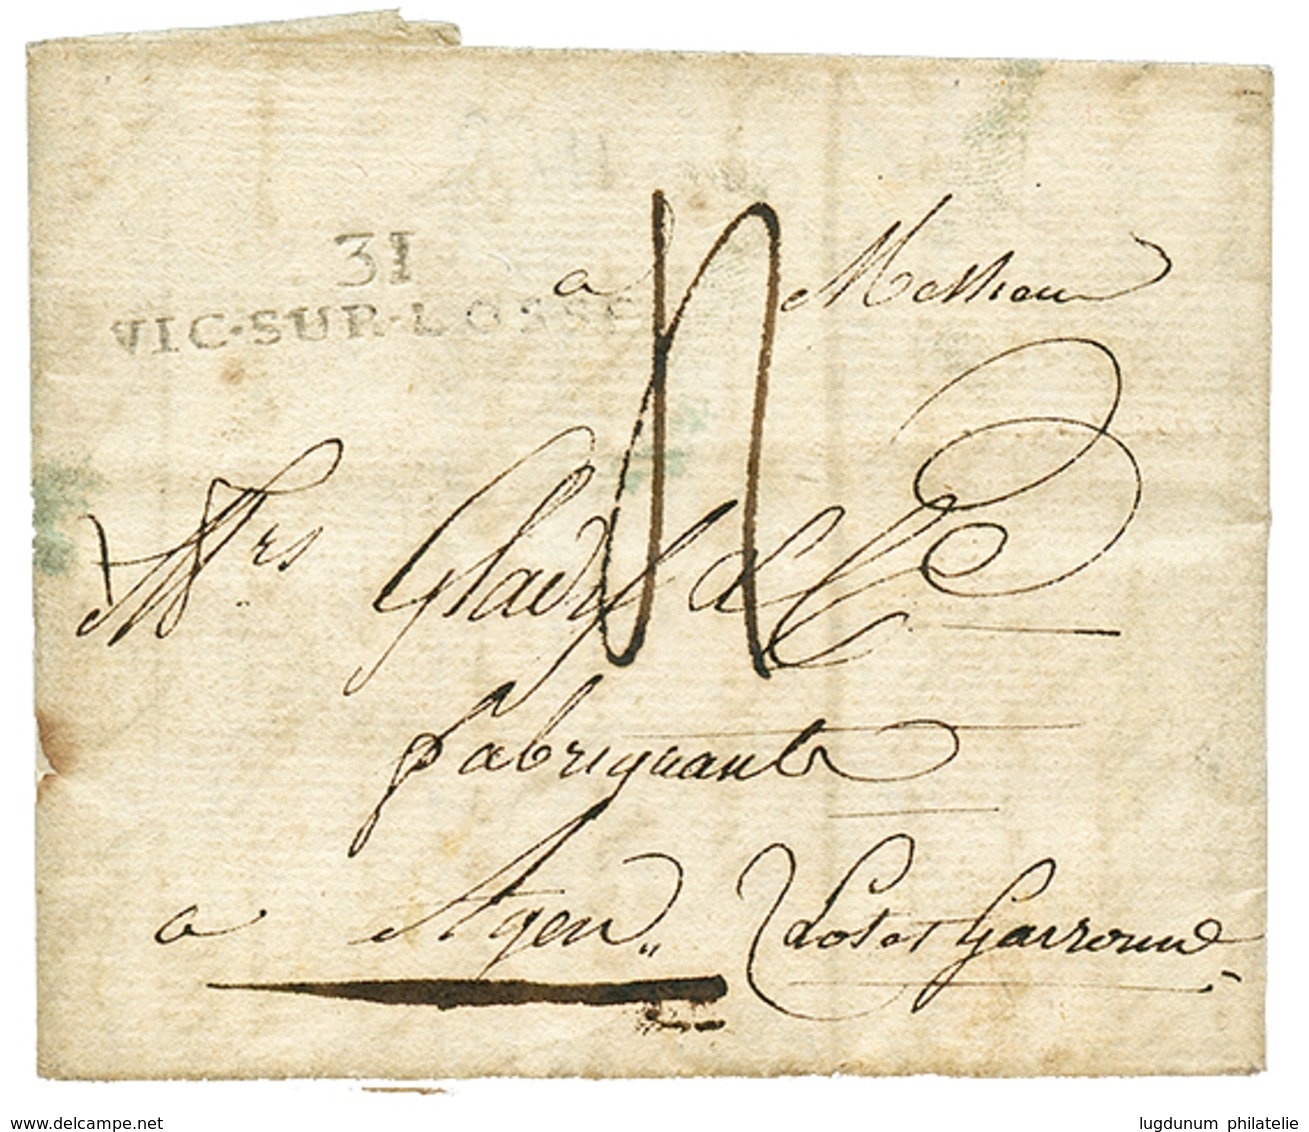 31
VIC·SUR·LOSSE
a Messieurs
Mrs Gladi & Ce
fabriquants
a Agen „ Lot et Garronne
www.delcampe.net
lugdunum philatelie